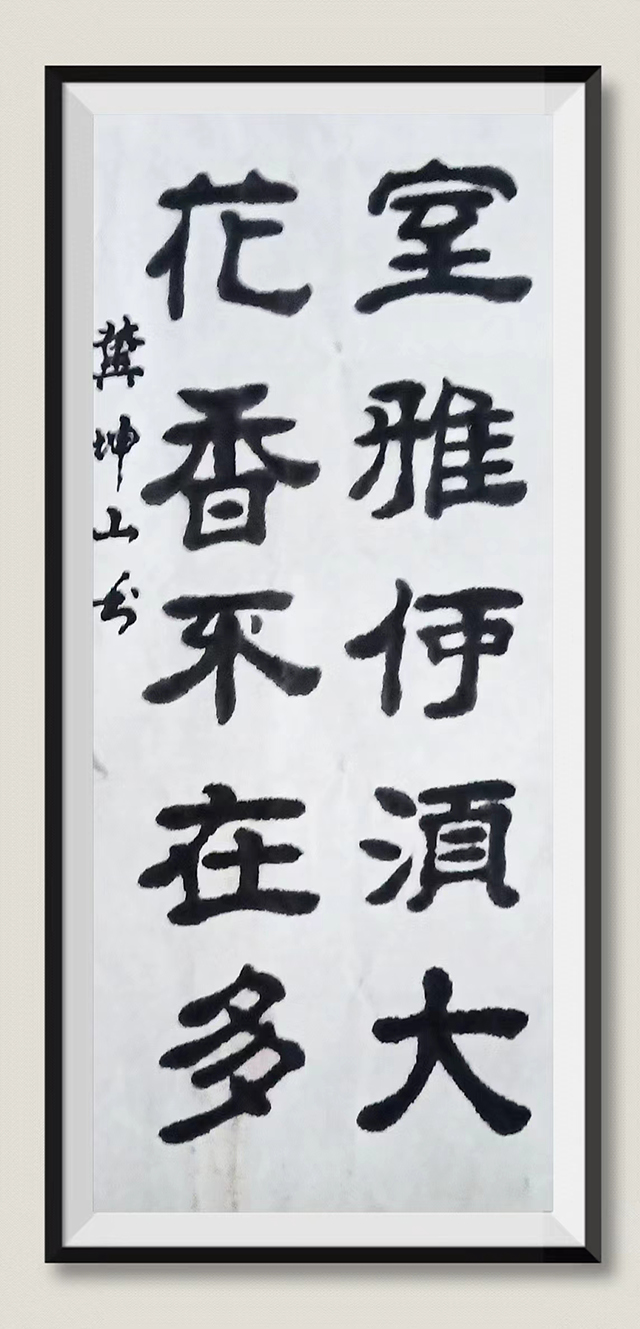 室雅何須大
花香不在多
龔坤山书